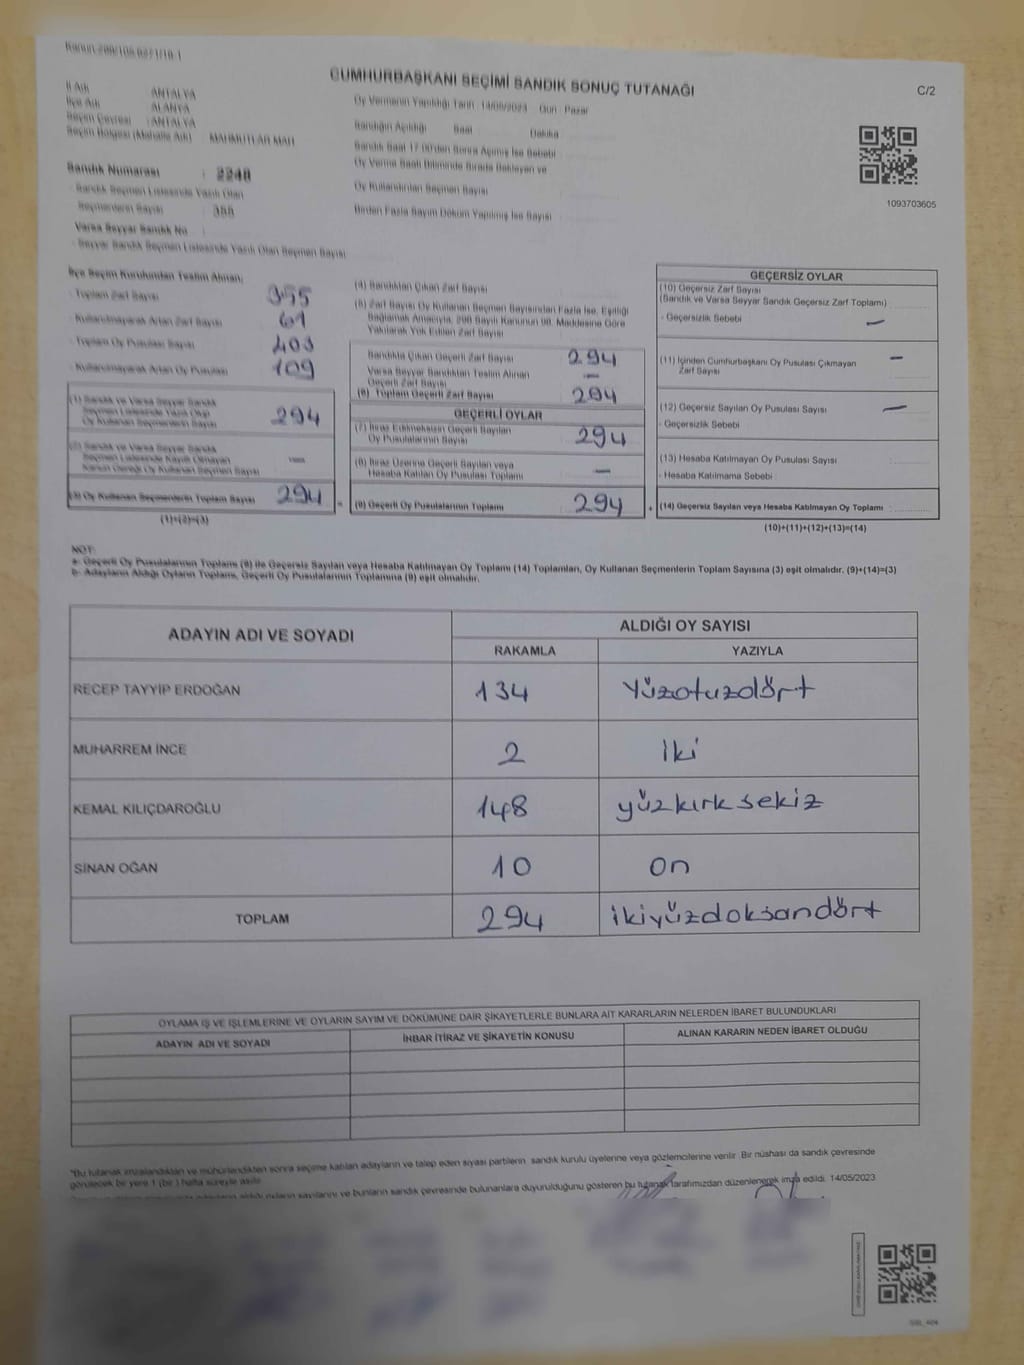 CUMHURBAŞKANI SEÇİMİ SANDIK SONUÇ TUTANAĞI
C/2
İl Adı : ANTALYA
İlçe Adı : ALANYA
Seçim Çevresi : ANTALYA
Seçim Bölgesi (Mahalle Adı) : MAHMUTLAR MAH.
Oy Vermenin Yapıldığı Tarih : 14/05/2023 Gün : Pazar
Sandığın Açıldığı Saat Dakika
Sandık Saat 17.00'den Sonra Açılmış İse Sebebi
Oy Verme Saati Bitiminde Sırada Bekleyen ve
Oy Kullandırılan Seçmen Sayısı
Birden Fazla Sayım Döküm Yapılmış İse Sayısı
1093703605
Sandık Numarası : 2248
- Sandık Seçmen Listesinde Yazılı Olan
Seçmenlerin Sayısı :
Varsa Seyyar Sandık No
- Seyyar Sandık Seçmen Listesinde Yazılı Olan Seçmen Sayısı
İlçe Seçim Kurulundan Teslim Alınan;
- Toplam Zarf Sayısı 355
- Kullanılmayarak Artan Zarf Sayısı 61
- Toplam Oy Pusulası Sayısı 403
- Kullanılmayarak Artan Oy Pusulası 109
(1) Sandık ve Varsa Seyyar Sandık
Seçmen Listesinde Yazılı Olup
Oy Kullanan Seçmenlerin Sayısı 294
(2) Sandık ve Varsa Seyyar Sandık
Seçmen Listesinde Kayıtlı Olmayan
Kanun Gereği Oy Kullanan Seçmen Sayısı —
(3) Oy Kullanan Seçmenlerin Toplam Sayısı 294 =
(1)+(2)=(3)
(4) Sandıktan Çıkan Zarf Sayısı
(5) Zarf Sayısı Oy Kullanan Seçmen Sayısından Fazla İse, Eşitliği
Sağlamak Amacıyla, 298 Sayılı Kanunun 98. Maddesine Göre
Yakılarak Yok Edilen Zarf Sayısı
Sandıkta Çıkan Geçerli Zarf Sayısı 294
Varsa Seyyar Sandıktan Teslim Alınan
Geçerli Zarf Sayısı —
(6) Toplam Geçerli Zarf Sayısı 294
GEÇERLİ OYLAR
(7) İtiraz Edilmeksizin Geçerli Sayılan
Oy Pusulalarının Sayısı 294
(8) İtiraz Üzerine Geçerli Sayılan veya
Hesaba Katılan Oy Pusulası Toplamı —
(9) Geçerli Oy Pusulalarının Toplamı 294 +
GEÇERSİZ OYLAR
(10) Geçersiz Zarf Sayısı
(Sandık ve Varsa Seyyar Sandık Geçersiz Zarf Toplamı)
- Geçersizlik Sebebi —
(11) İçinden Cumhurbaşkanı Oy Pusulası Çıkmayan
Zarf Sayısı —
(12) Geçersiz Sayılan Oy Pusulası Sayısı —
- Geçersizlik Sebebi
(13) Hesaba Katılmayan Oy Pusulası Sayısı
- Hesaba Katılmama Sebebi
(14) Geçersiz Sayılan veya Hesaba Katılmayan Oy Toplamı :
(10)+(11)+(12)+(13)=(14)
NOT:
a- Geçerli Oy Pusulalarının Toplamı (9) ile Geçersiz Sayılan veya Hesaba Katılmayan Oy Toplamı (14) Toplamları, Oy Kullanan Seçmenlerin Toplam Sayısına (3) eşit olmalıdır. (9)+(14)=(3)
b- Adayların Aldığı Oyların Toplamı, Geçerli Oy Pusulalarının Toplamına (9) eşit olmalıdır.
ADAYIN ADI VE SOYADI ALDIĞI OY SAYISI
RAKAMLA YAZIYLA
RECEP TAYYİP ERDOĞAN 134 Yüzotuzdört
MUHARREM İNCE 2 iki
KEMAL KILIÇDAROĞLU 148 yüzkırksekiz
SİNAN OĞAN 10 on
TOPLAM 294 ikiyüzdoksandört
OYLAMA İŞ VE İŞLEMLERİNE VE OYLARIN SAYIM VE DÖKÜMÜNE DAİR ŞİKAYETLERLE BUNLARA AİT KARARLARIN NELERDEN İBARET BULUNDUKLARI
ADAYIN ADI VE SOYADI İHBAR İTİRAZ VE ŞİKAYETİN KONUSU ALINAN KARARIN NEDEN İBARET OLDUĞU
"Bu tutanak imzalandıktan ve mühürlendikten sonra seçime katılan adayların ve talep eden siyasi partilerin sandık kurulu üyelerine veya gözlemcilerine verilir. Bir nüshası da sandık çevresinde
görülecek bir yere 1 (bir ) hafta süreyle asılır.
oyların sayılarını ve bunların sandık çevresinde bulunanlara duyurulduğunu gösteren bu tutanak tarafımızdan düzenlenerek imza edildi. 14/05/2023